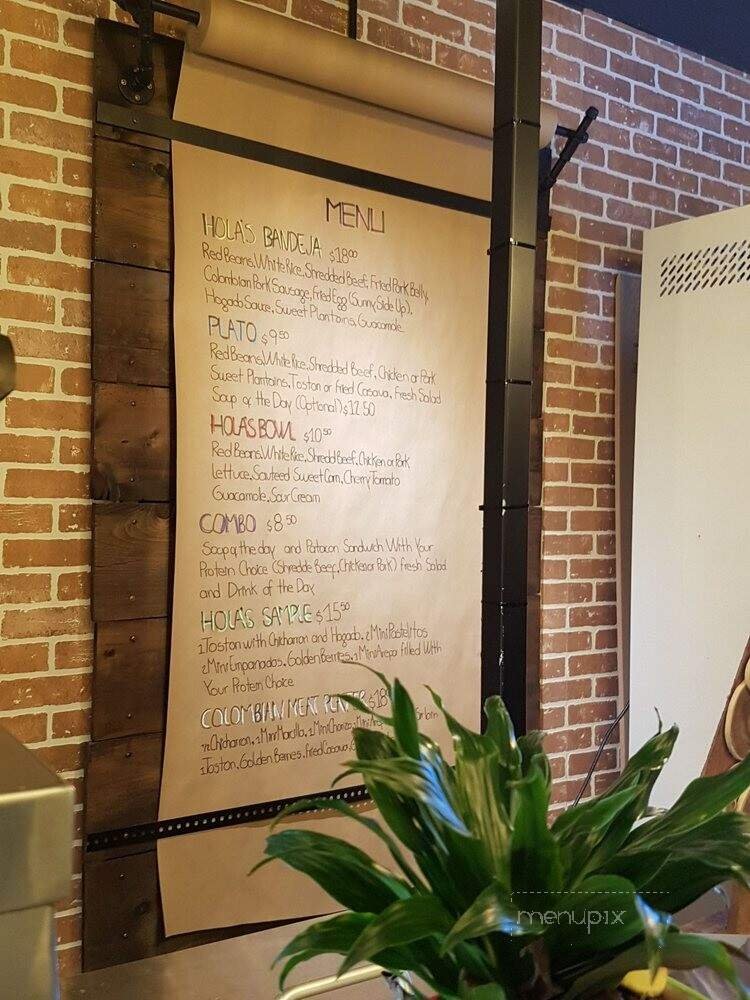 MENU
HOLA'S BANDEJA $18.00
Red Beans, White Rice, Shredded Beef, Fried Pork Belly,
Colombian Pork Sausage, Fried Egg (Sunny Side Up),
Hogado Sauce, Sweet Plantains, Guacamole
PLATO $9.50
Red Beans, White Rice, Shredded Beef, Chicken or Pork
Sweet Plantains, Toston or Fried Cassava, Fresh Salad
Soup of the Day (Optional) $12.50
HOLA'S BOWL $10.50
Red Beans, White Rice, Shredd Beef, Chicken or Pork
Lettuce, Sauteed Sweet Corn, Cherry Tomato
Guacamole, Sour Cream
COMBO $8.50
Soup of the day and Patacon Sandwich With Your
Protein Choice (Shredde Beef, Chicken or Pork) Fresh Salad
and Drink of the Day
HOLA'S SAMPLE $15.50
1 Toston with Chicharron and Hogado, 2 Mini Pastelitos
2 Mini Empanadas, Golden Berries, 1 Mini Arepa Filled With
Your Protein Choice
COLOMBIAN MEAT PLATTER $18
1/2 Chicharron, 1 Mini Morcilla, 1 Mini Chorizo, 1 Mini Sirloin
1 Toston, Golden Berries, Fried Casava,
menupix